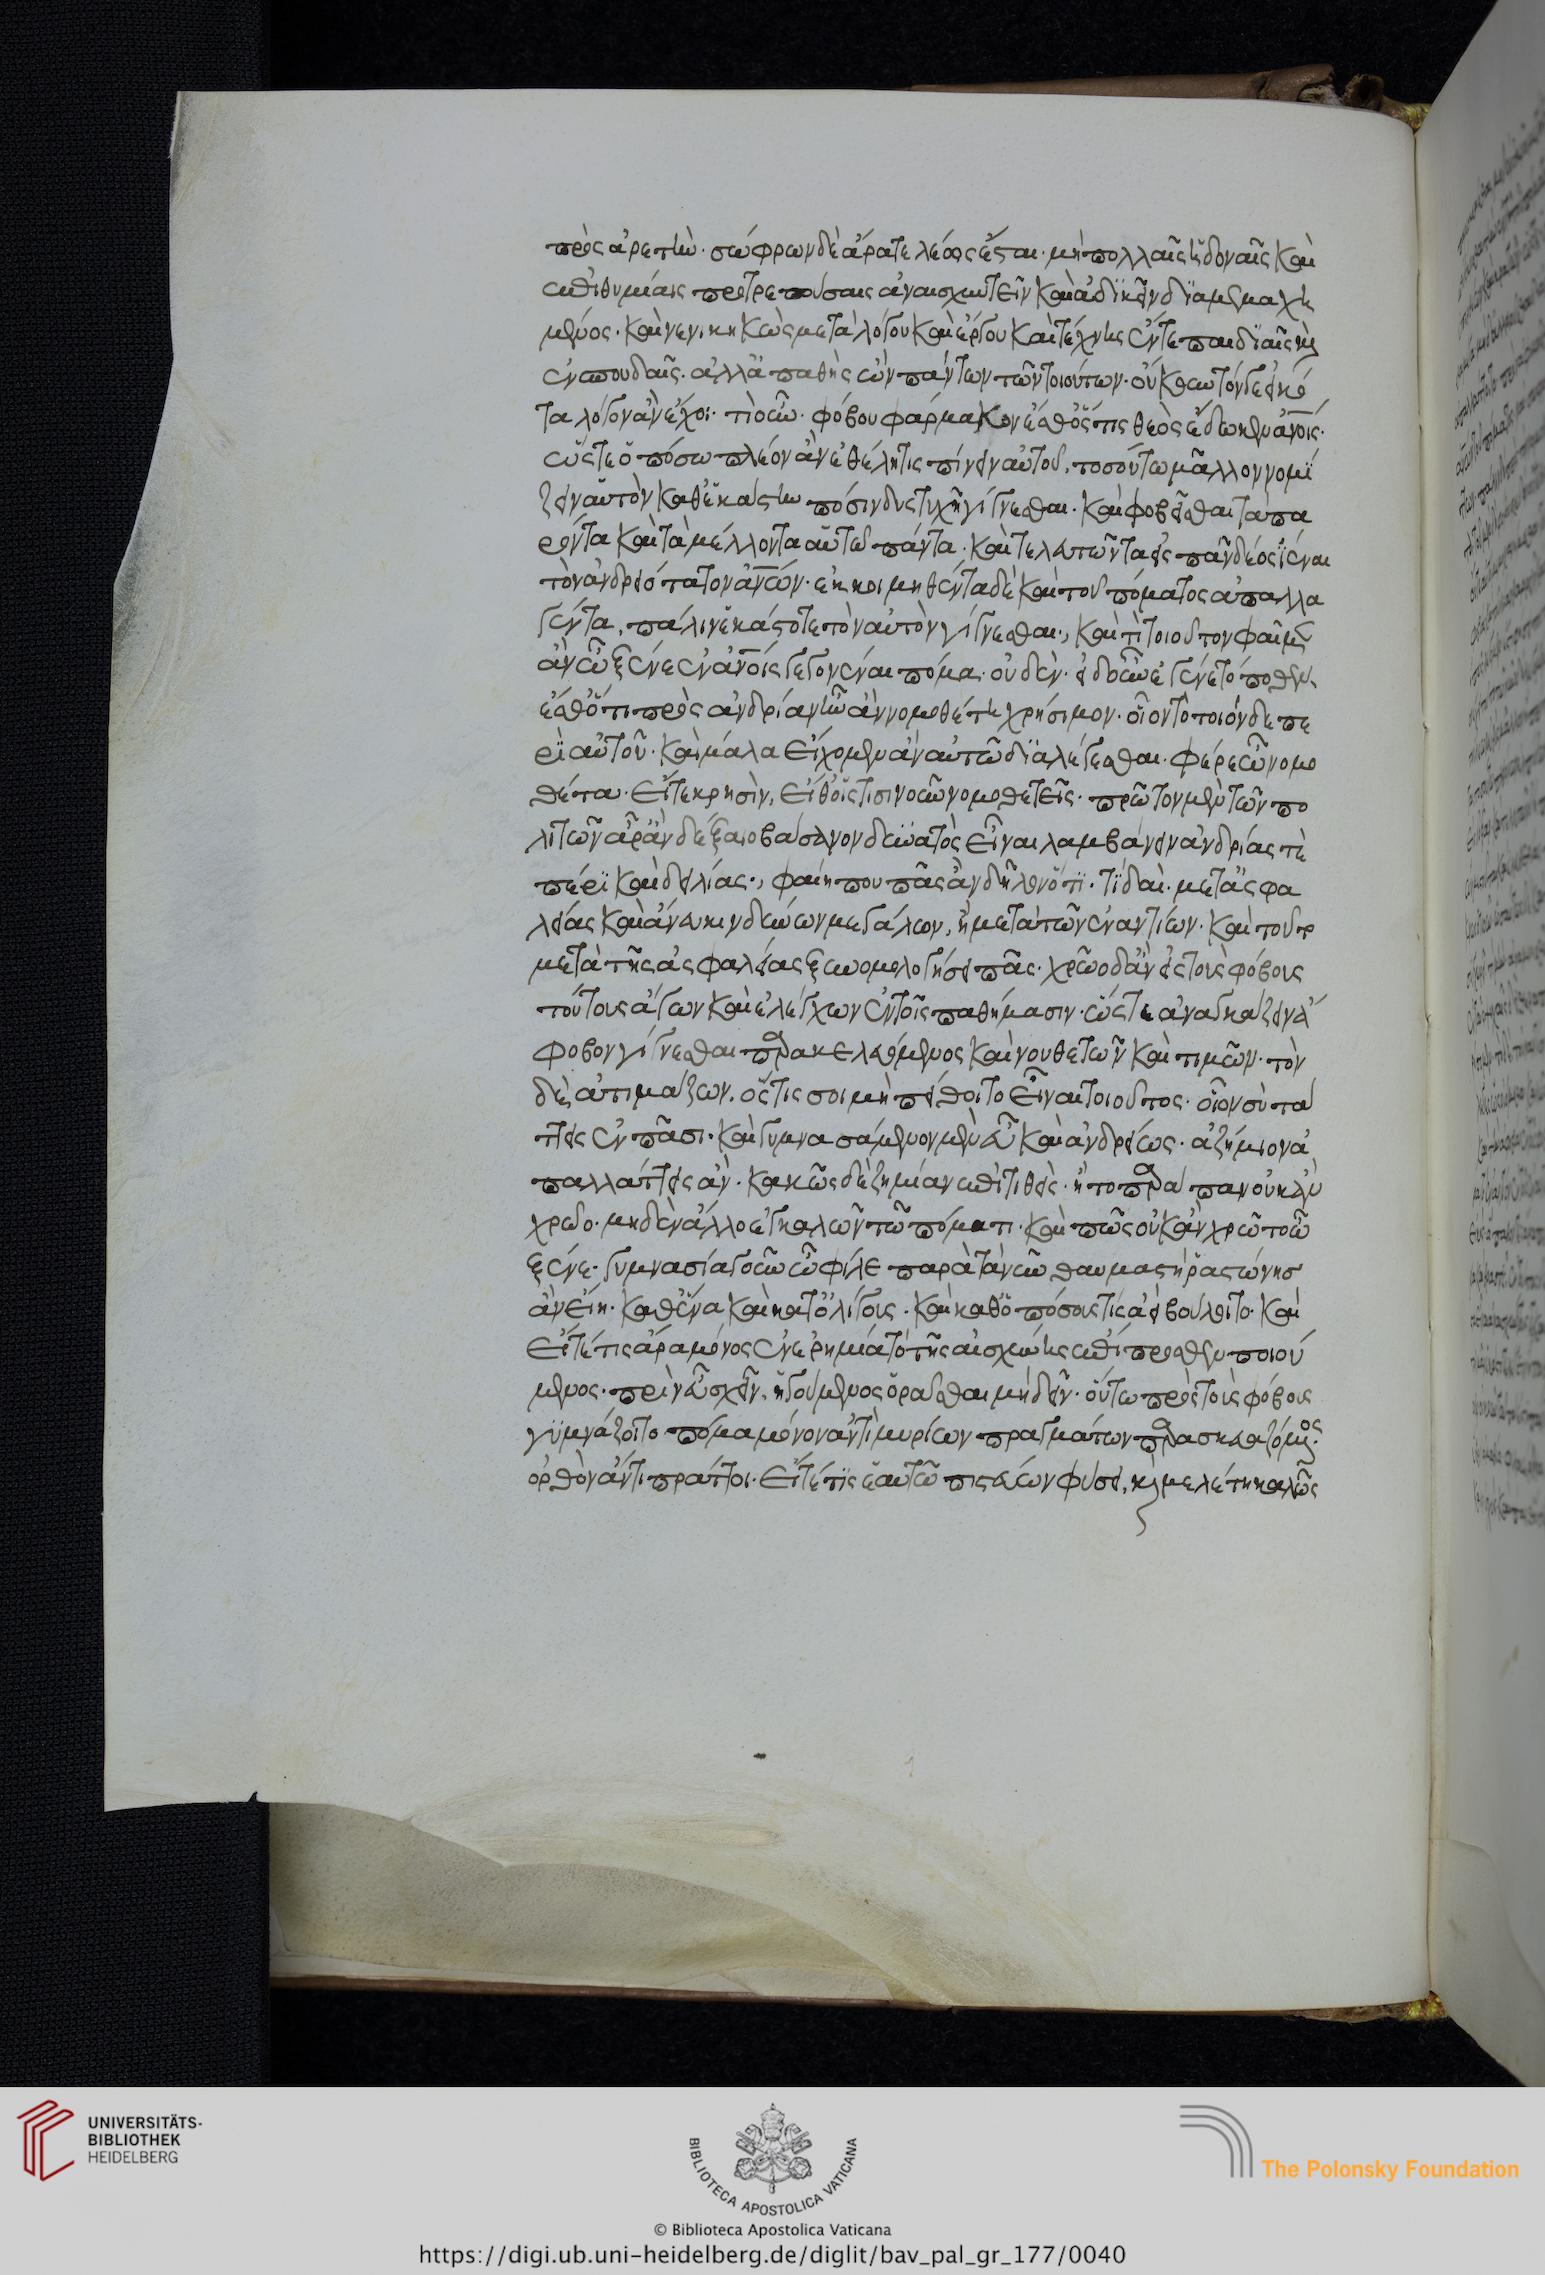 πρὸς ἀρετήν· σώφρων δὲ ἄρα τελέως ἔσται· μὴ πολλαῖς ἡδοναῖς καὶ
ἐπιθυμίαις προτρεπούσαις ἀναισχυντεῖν καὶ ἀδικεῖν διαμεμαχη
μένος· καὶ νενικηκὼς μετὰ λόγου καὶ ἔργου καὶ τέχνης ἔν τε παιδιαῖς καὶ
ἐν σπουδαῖς· ἀλλ' ἀπαθὴς ὢν πάντων τῶν τοιούτων· οὔκουν τόν γε εἰκό
τα λόγον ἂν ἔχοι· τί οὖν· φόβου φάρμακον ἔσθ' ὅστις θεὸς ἔδωκεν ἀνοις·
ὥστε ὁπόσω πλέον ἂν ἐθέλη τις πίνειν αὐτοῦ, τοσούτω μᾶλλον νομί
ζειν αὐτὸν καθ' ἑκάστην πόσιν δυστυχῆ γίγνεσθαι· καὶ φοβεῖσθαι τὰ πα
ρόντα καὶ τὰ μέλλοντα αὐτῶ πάντα· καὶ τελευτῶντα εἰς πᾶν δέος ἰέναι
τὸν ἀνδρειότατον ἀνων· ἐκκοιμηθέντα δὲ καὶ τοῦ πόματος ἀπαλλα
γέντα, πάλιν ἑκάστοτε τὸν αὐτὸν γίγνεσθαι·, καὶ τί τοιοῦτον φαῖμεν
ἂν ὦ ξένε ἐν ἀνοις γεγονέναι πόμα· οὐδέν· εἰ δ' οὖν ἐγένετό ποθεν,
ἔσθ' ὅτι πρὸς ἀνδρίαν ἦν ἂν νομοθέτη χρήσιμον· οἷον τὸ τοιόνδε πε
ρὶ αὐτοῦ· καὶ μάλα εἴχομεν ἂν αὐτῶ διαλέγεσθαι· φέρε ὦ νομο
θέτα· εἴτε κρησὶν, εἴθ' οἷστισιν οὖν νομοθετεῖς· πρῶτον μὲν τῶν πο
λιτῶν ἆρ' ἂν δέξαιο βάσανον δυνατὸς εἶναι λαμβάνειν ἀνδρίας τε
πέρι καὶ δειλίας·, φαίη που πᾶς ἂν δῆλον ὅτι· τί δαί· μετὰ ἀσφα
λείας καὶ ἄνευ κινδύνων μεγάλων, ἢ μετὰ τῶν ἐναντίων· καὶ τοῦτο
μετὰ τῆς ἀσφαλείας ξυνομολογήσει πᾶς· χρῶο δ' ἂν εἰς τοὺς φόβους
τούτους ἄγων καὶ ἐλέγχων ἐν τοῖς παθήμασιν· ὥστε ἀναγκάζειν ἄ
φοβον γίγνεσθαι παρακελευόμενος καὶ νουθετῶν καὶ τιμῶν· τὸν
δὲ ἀτιμάζων, ὅστις σοι μὴ πείθοιτο εἶναι τοιοῦτος· οἷον σὺ τάτ
τεις ἐν πᾶσι· καὶ γυμνασάμενον μὲν εὖ καὶ ἀνδρείως· ἀζήμιον ἀ
παλλάττεις ἄν· κακῶς δὲ ζημίαν ἐπιτιθείς· ἢ τὸ παράπαν οὐκ ἂν
χρῶο· μηδὲν ἄλλο ἐγκαλῶν τῶ πόματι· καὶ πῶς οὐκ ἂν χρῶτο ὦ
ξένε· γυμνασία γοῦν ὦ φίλε παρὰ τὰ νῦν θαυμαστὴ ῥαστώνης
ἂν εἴη· καθ' ἕνα καὶ κατ' ὀλίγους· καὶ καθ' ὁπόσους τίς ἀεὶ βούλοιτο· καὶ
εἴτέ τις ἄρα μόνος ἐν ἐρημία τὸ τῆς αἰσχύνης ἐπίπροσθεν ποιού
μενος· πρὶν εὖ σχεῖν, ἡγούμενος ὁρᾶσθαι μὴ δεῖν· οὕτω πρὸς τοὺς φόβους
γυμνάζοιτο πόμα μόνον ἀντὶ μυρίων πραγμάτων παρασκευαζόμενος·
ὀρθὸν ἄν τι πράττοι· εἴτέ τις ἑαυτῶ πιστεύων φύσει, καὶ μελέτη καλῶς
UNIVERSITÄTS-
BIBLIOTHEK
HEIDELBERG
BIBLIOTECA APOSTOLICA VATICANA
The Polonsky Foundation
© Biblioteca Apostolica Vaticana
https://digi.ub.uni-heidelberg.de/diglit/bav_pal_gr_177/0040